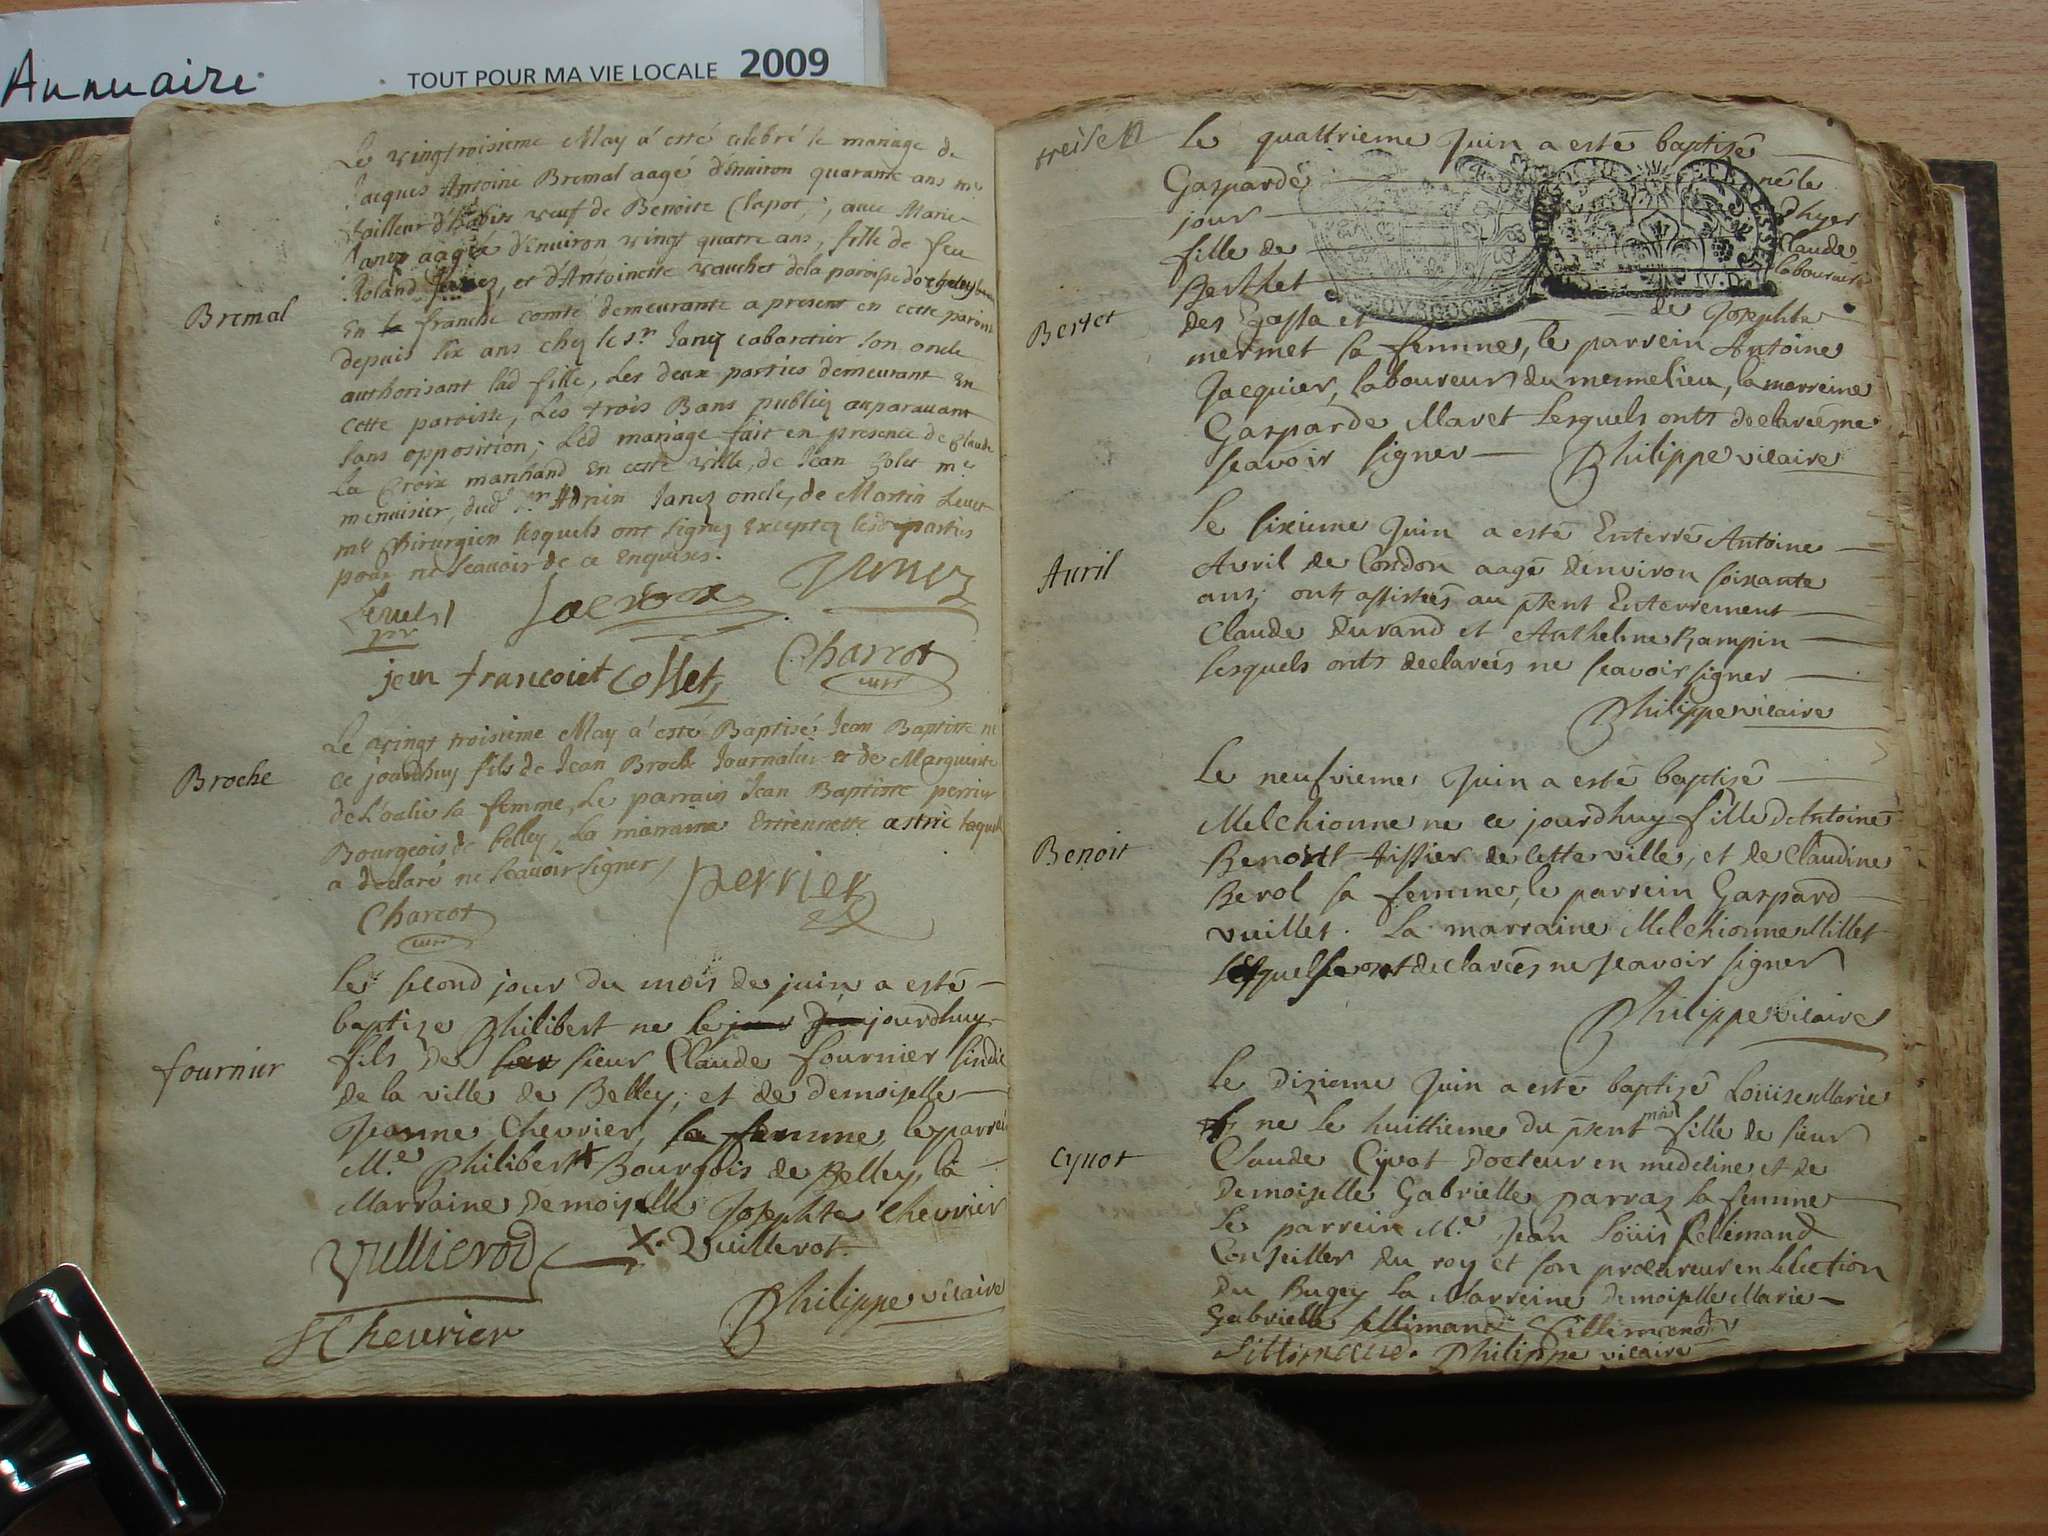 Annuaire
TOUT POUR MA VIE LOCALE 2009
Le vingtroisieme May a esté celebré le mariage de
Jacques Antoine Bremal aagé d'Environ quarante ans me
tailleur d'habits veuf de Benoite Clapot, avec Marie
Janez aagée d'Environ vingt quatre ans, fille de feu
Roland Janez, et d'Antoinette vauchet de la paroisse d'orgelet
Bremal
En la franche comté demeurante a present en cette paroisse
depuis six ans chez le sr Janez cabaretier son oncle
authorisant lad fille, Les deux parties demeurant En
cette paroisse, Les trois Bans publiez auparavant
sans opposition; Led mariage fait en presence de Claude
La Croix marchand En cette ville, de Jean Colet me
menuisier, dud sr Janez oncle, de Martin Levet
me Chirurgien lesquels ont signez Exceptez lesd parties
pour ne scavoir de ce Enquises.
Levet Lacroix Janez
jean francoiet Collet Charcot
curé
Le vingt troisieme May a esté Baptisé Jean Baptiste né
ce jourdhuy fils de Jean Broche Journalier et de Marguerite
Broche
de sa femme, Le parrain Jean Baptiste perrier
Bourgeois de belley, La marraine Estiennette astric laquelle
a declaré ne scavoir signer
perrier
Charcot
curé
Le second jour du mois de juin a esté
baptize Philibert ne le jour jourdhuy
fournier
fils de sieur Claude fournier sindic
de la ville de Belley, et de demoiselle
Jeanne Chevrier, sa femme, le parrein
Me Philibert x Bourgois de Belley, la
Marraine demoiselle Josephte Chevrier
Vullierod x. Vuillerot.
Philippe vicaire
Chevrier
treise
Le quattrieme Juin a esté baptisé
Gasparde né le
jour d'hyer
fille de Claude
Berthet laboureur
Bertet
des Ecassa et de Josephte
mermet sa femme, le parrein Antoine
Jacquier, laboureur du mesme lieu, la marreine
Gasparde Maret Lesquels onts declarés ne
scavoir signer Philippe vicaire
Le sixieme Juin a esté Enterré Antoine
Avril
Avril de Condon aagé d'environ soixante
ans, ont assistées au psent Enterrement
Claude Durand et Anthelme Rampin
lesquels onts declarés ne scavoir signer
Philippe vicaire
Le neufvieme Juin a esté baptisé
Melchionne ne ce jourdhuy fille d'Antoine
Benoit
Benoit tissier de cette ville, et de Claudine
Berol sa femme, le parrein Gaspard
vuillet. La marraine Melchionne Millet
lesquels ont declarées ne scavoir signer
Philippe vicaire
Le dizieme Juin a esté baptizé Louise Marie
né Le huittieme du psent mois fille de sieur
Cyvot
Claude Cyvot Docteur en medecine et de
Demoiselle Gabrielle parraz sa femme
Le parrein Me Jean Louis sellemand
Conseiller du roy et son procureur en l'election
du Bugey La Marreine demoiselle Marie
Gabrielle sellimand
Philippe vicaire